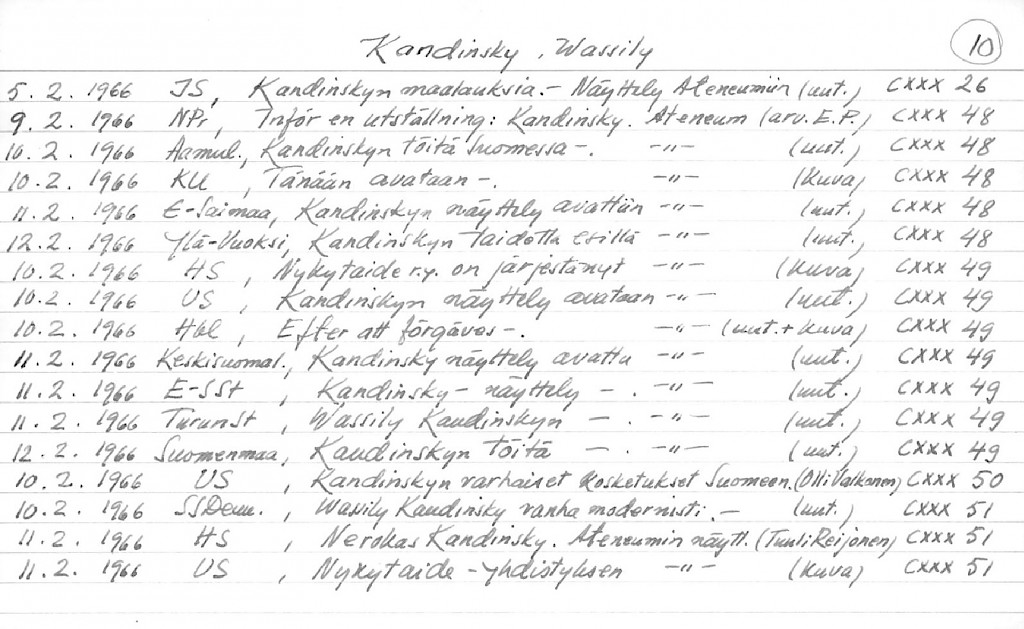 Kandinsky, Wassily
10
5.2.1966 JS, Kandinskyn maalauksia.- Näyttely Ateneumiin (uut.) CXXX 26
9.2.1966 NPr, Inför en utställning: Kandinsky. Ateneum (arv. E.P.) CXXX 48
10.2.1966 Aamul., Kandinskyn töitä Suomessa -. -"- (uut.) CXXX 48
10.2.1966 KU, Tänään avataan -. -"- (kuva) CXXX 48
11.2.1966 E-Saimaa, Kandinskyn näyttely avattiin -"- (uut.) CXXX 48
12.2.1966 Ylä-Vuoksi, Kandinskyn taidetta esillä -"- (uut.) CXXX 48
10.2.1966 HS, Nykytaide r.y. on järjestänyt -"- (kuva) CXXX 49
10.2.1966 US, Kandinskyn näyttely avataan -"- (uut.) CXXX 49
10.2.1966 Hbl, Efter att förgäves -. -"- (uut.+kuva) CXXX 49
11.2.1966 Keskisuomal., Kandinsky näyttely avattu -"- (uut.) CXXX 49
11.2.1966 E-SSt, Kandinsky- näyttely -. -"- (uut.) CXXX 49
11.2.1966 TurunSt, Wassily Kandinskyn -. -"- (uut.) CXXX 49
12.2.1966 Suomenmaa, Kandinskyn töitä -. -"- (uut.) CXXX 49
10.2.1966 US, Kandinskyn varhaiset kosketukset Suomeen. (Olli Valkonen) CXXX 50
10.2.1966 SSDem., Wassily Kandinsky vanha modernisti.- (uut.) CXXX 51
11.2.1966 HS, Nerokas Kandinsky. Ateneumin näytt. (Tuuli Reijonen) CXXX 51
11.2.1966 US, Nykytaide-yhdistyksen -"- (kuva) CXXX 51